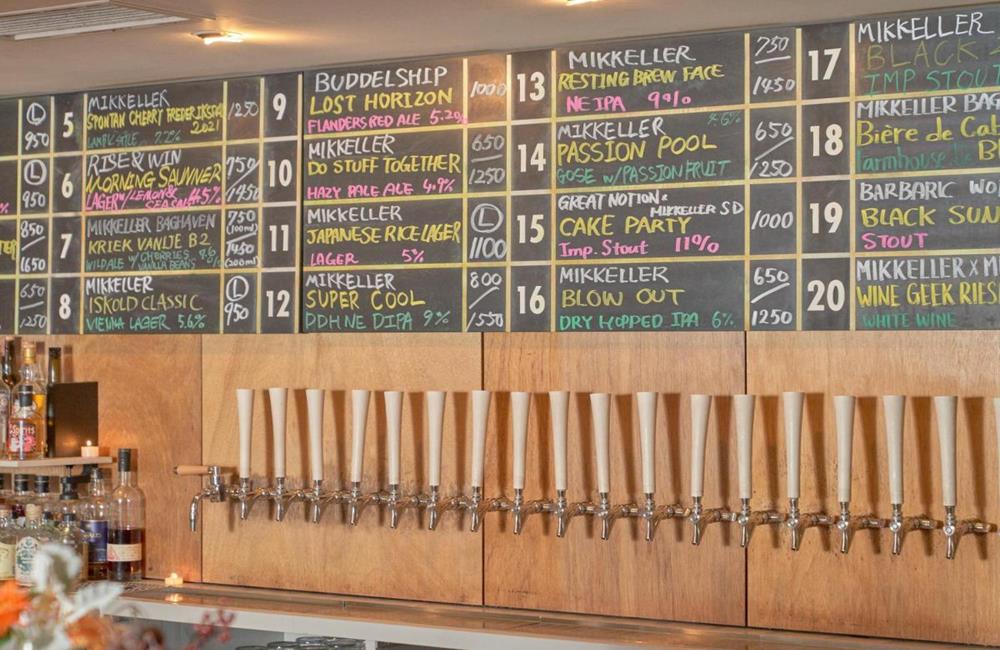 L
950
L
950
850
1650
650
1250
5
MIKKELLER
SPONTAN CHERRY FREDERIKSDAL
2021
7.2%
1250
6
RISE & WIN
MORNING SAUVNER
LAGER w/LEMON &
4.5%
750
1450
7
MIKKELLER BAGHAVEN
KRIEK VANLJE B2
WILD ALE w/ CHERRIES &
VANILLA BEANS
750
1450
8
MIKKELLER
ISKOLD CLASSIC
VIENNA LAGER 5.6%
L
950
9
BUDDELSHIP
LOST HORIZON
FLANDERS RED ALE 5.2%
1000
10
MIKKELLER
DO STUFF TOGETHER
HAZY PALE ALE 4.9%
650
1250
11
MIKKELLER
JAPANESE RICE LAGER
LAGER 5%
L
1100
12
MIKKELLER
SUPER COOL
DDH NE DIPA 9%
800
1550
13
MIKKELLER
RESTING BREW FACE
NE IPA 9%
750
1450
14
MIKKELLER
PASSION POOL
GOSE w/PASSION FRUIT
650
1250
15
GREAT NOTION &
MIKKELLER SD
CAKE PARTY
Imp. Stout 11%
1000
16
MIKKELLER
BLOW OUT
DRY HOPPED IPA 6%
650
1250
17
MIKKELLER
BLACK
IMP STOUT
18
MIKKELLER BAG
Bière de
farmhouse
19
BARBARIC WO
BLACK SUN
STOUT
20
MIKKELLER x M
WINE GEEK RIES
WHITE WINE